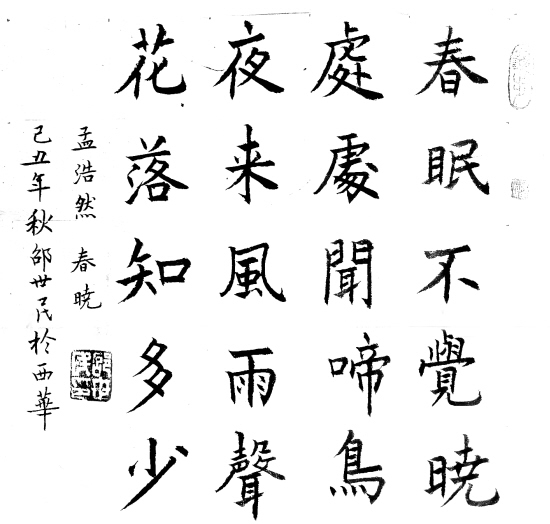 春眠不覺暁
處處聞啼鳥
夜来風雨聲
花落知多少
孟浩然 春暁
己丑年秋邵世民於西華